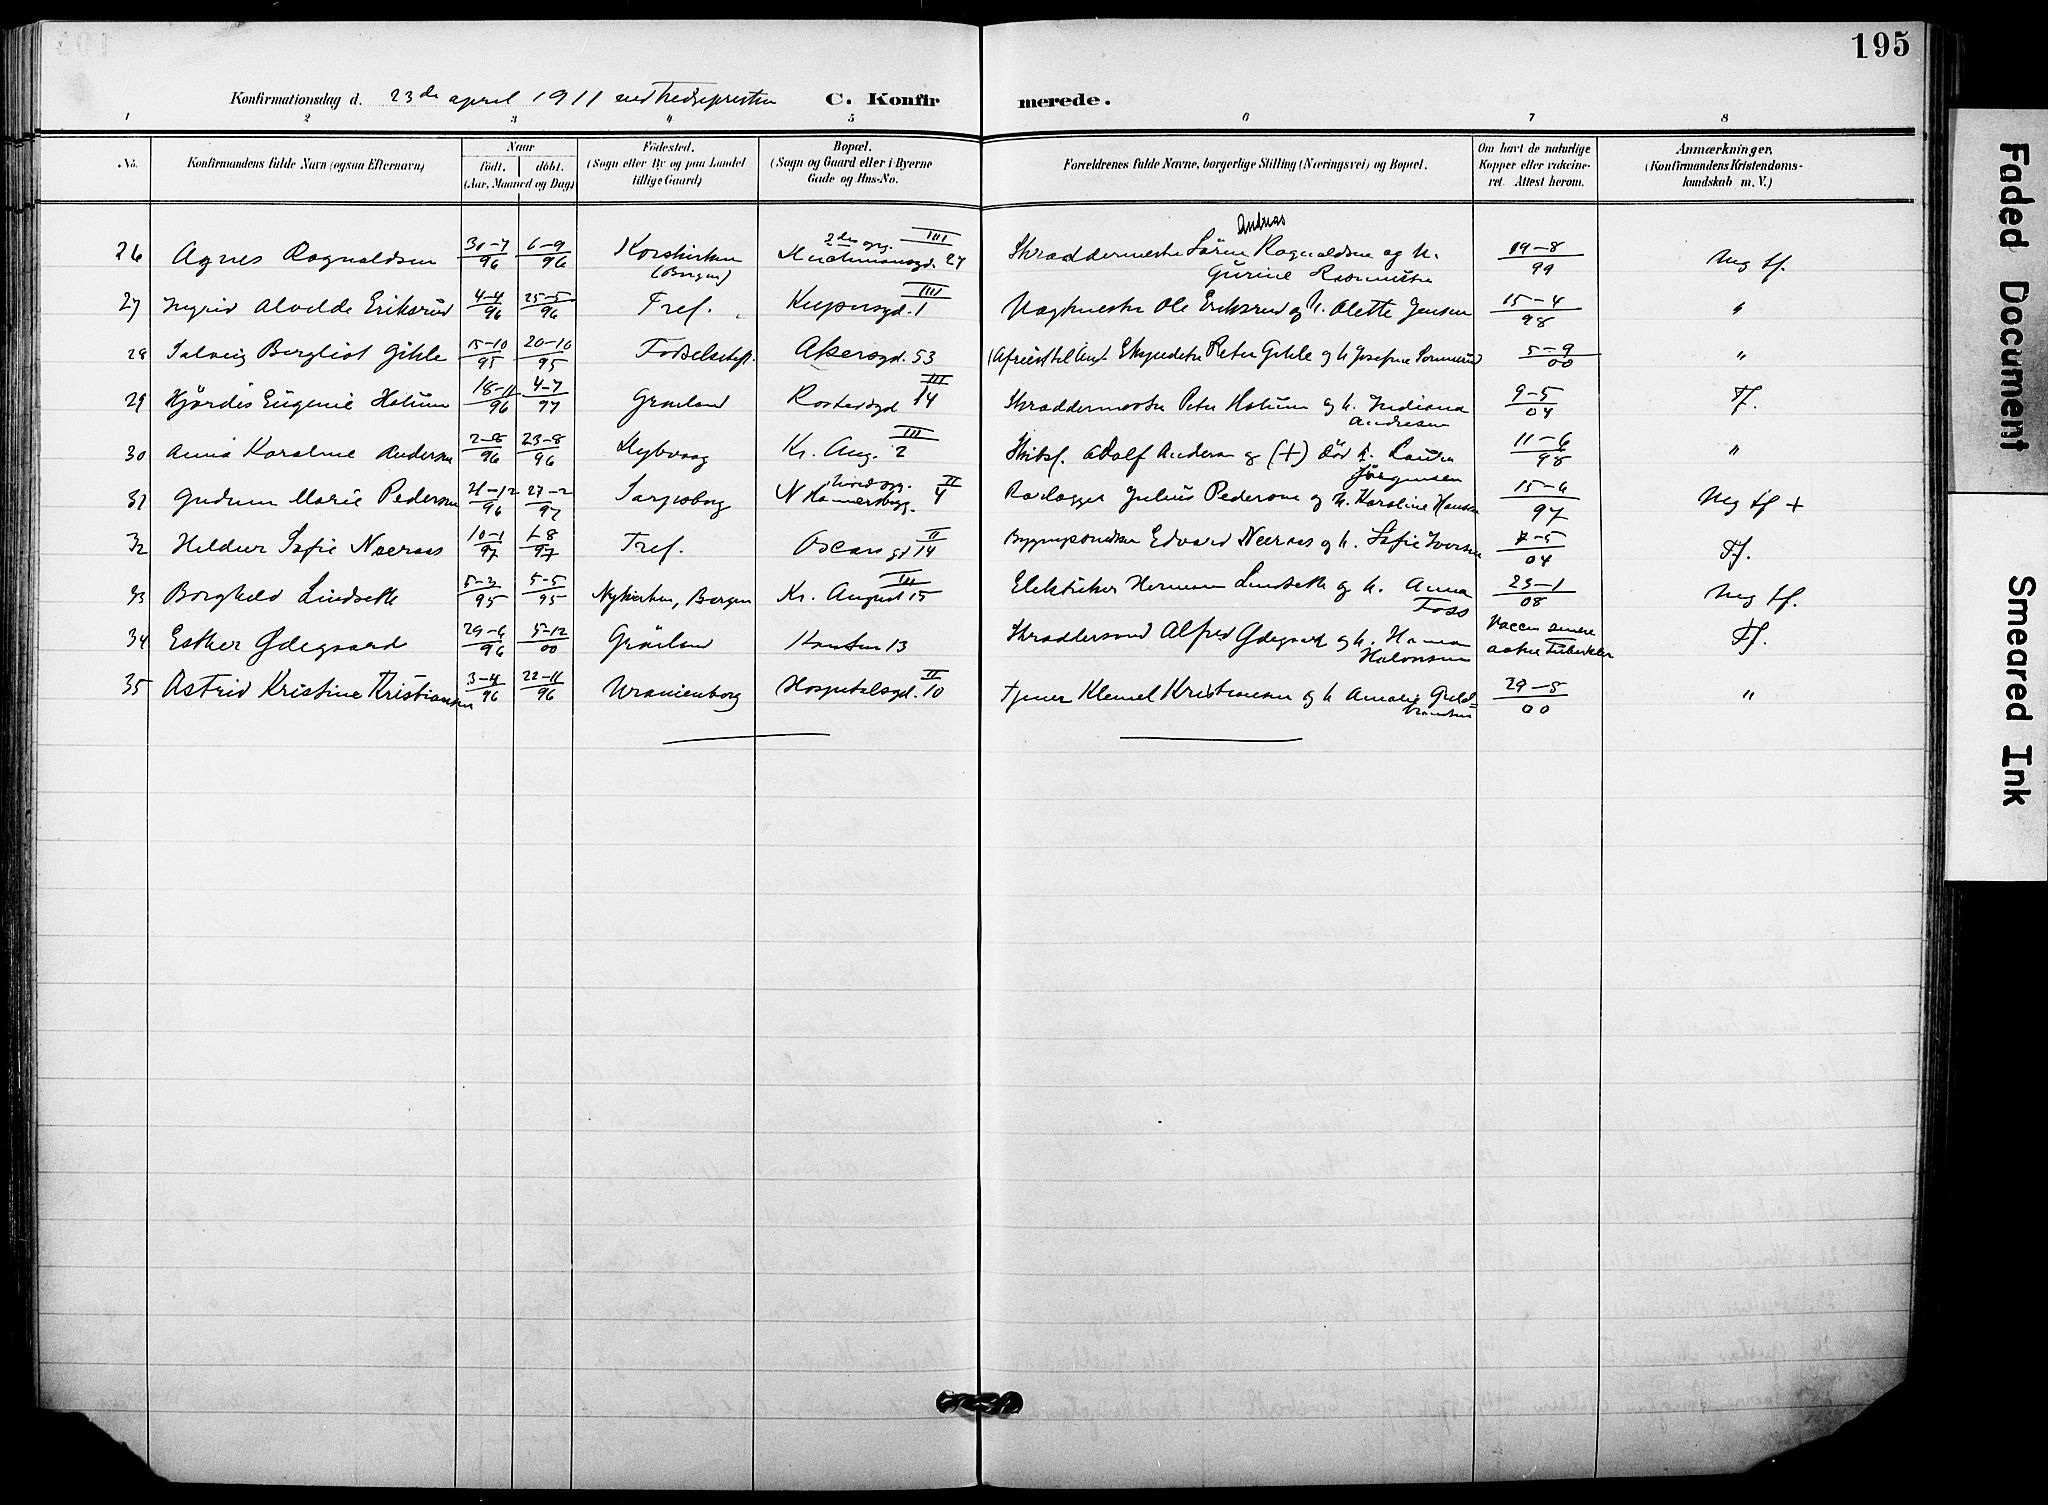 195
Konfirmationsdag d. 23de april 1911 ved C. Konfirmerede.
1 2 3 4 5 6 7 8
No. Konfirmandens fulde Navn (ogsaa Efternavn) Naar født. døbt. (Aar, Maaned og Dag) Fødested. (Sogn eller By og paa Landet tillige Gaard) Bopæl. (Sogn og Gaard eller i Byerne Gade og Hus-No. Forældrenes fulde Navne, borgerlige Stilling (Næringsvei) og Bopæl. Om havt de naturlige Kopper eller vakcineret. Attest herom. Anmærkninger, (Konfirmandens Kristendomskundskab m. V.)
26 Agnes Ragnvaldsen 96 6-9 96 Korskirken (Bergen) 27 III Skræddermester Søren Andreas og h. Gurine 19-8 99 Mg tf.
27 Ingrid Alvilde Eriksrud 4-4 96 25-5 96 Tref. 1 III Ole Eriksrud og h. Olette Jensen 15-4 98 "
28 Solveig Bergliot Gihle 15-10 95 20-10 95 Fødselsstift. Akersgd. 53 Peter Gihle og h Josefine 5-9 00 "
29 Hjørdis Eugenie Holum 18-11 96 4-7 97 Grønland 14 III Skræddermester Peter Holum og h. Indiana Andresen 9-5 04 Tf.
30 Anna Karoline Andersen 2-8 96 23-8 96 Dybvaag Kr. Aug. 2 III Adolf Andersen og (+) død h. Laura Jørgensen 11-6 98 "
31 Gudrun Marie Pedersen 21-12 96 27-2 97 Sarpsborg 4 II Julius Pedersen og h. Karoline Hansen 15-6 97 Mg tf +
32 Hildur Sofie Neeraas 10-1 97 1-8 97 Tref. Oscars gd 14 II Edvard Neeraas og h. Sofie Iversen 7-5 04 Tf.
33 Borghild Lindseth 95 5-5 95 Nykirken, Bergen Kr. August 15 III Elektriker Herman Lindseth og h. Anna Foss 23-1 08 Mg tf.
34 Esther Ødegaard 29-6 96 5-12 00 Grønland 13 Skræddersvend Alfred Ødegaard og h. Hanna Halvorsen Tf.
35 Astrid Kristine Kristiansen 3-4 96 22-11 96 Uranienborg Hospitalsgd. 10 II Tjener Klemet Kristiansen og h Amalie Guldbrandsen 29-5 00 "
Faded Document
Smeared Ink